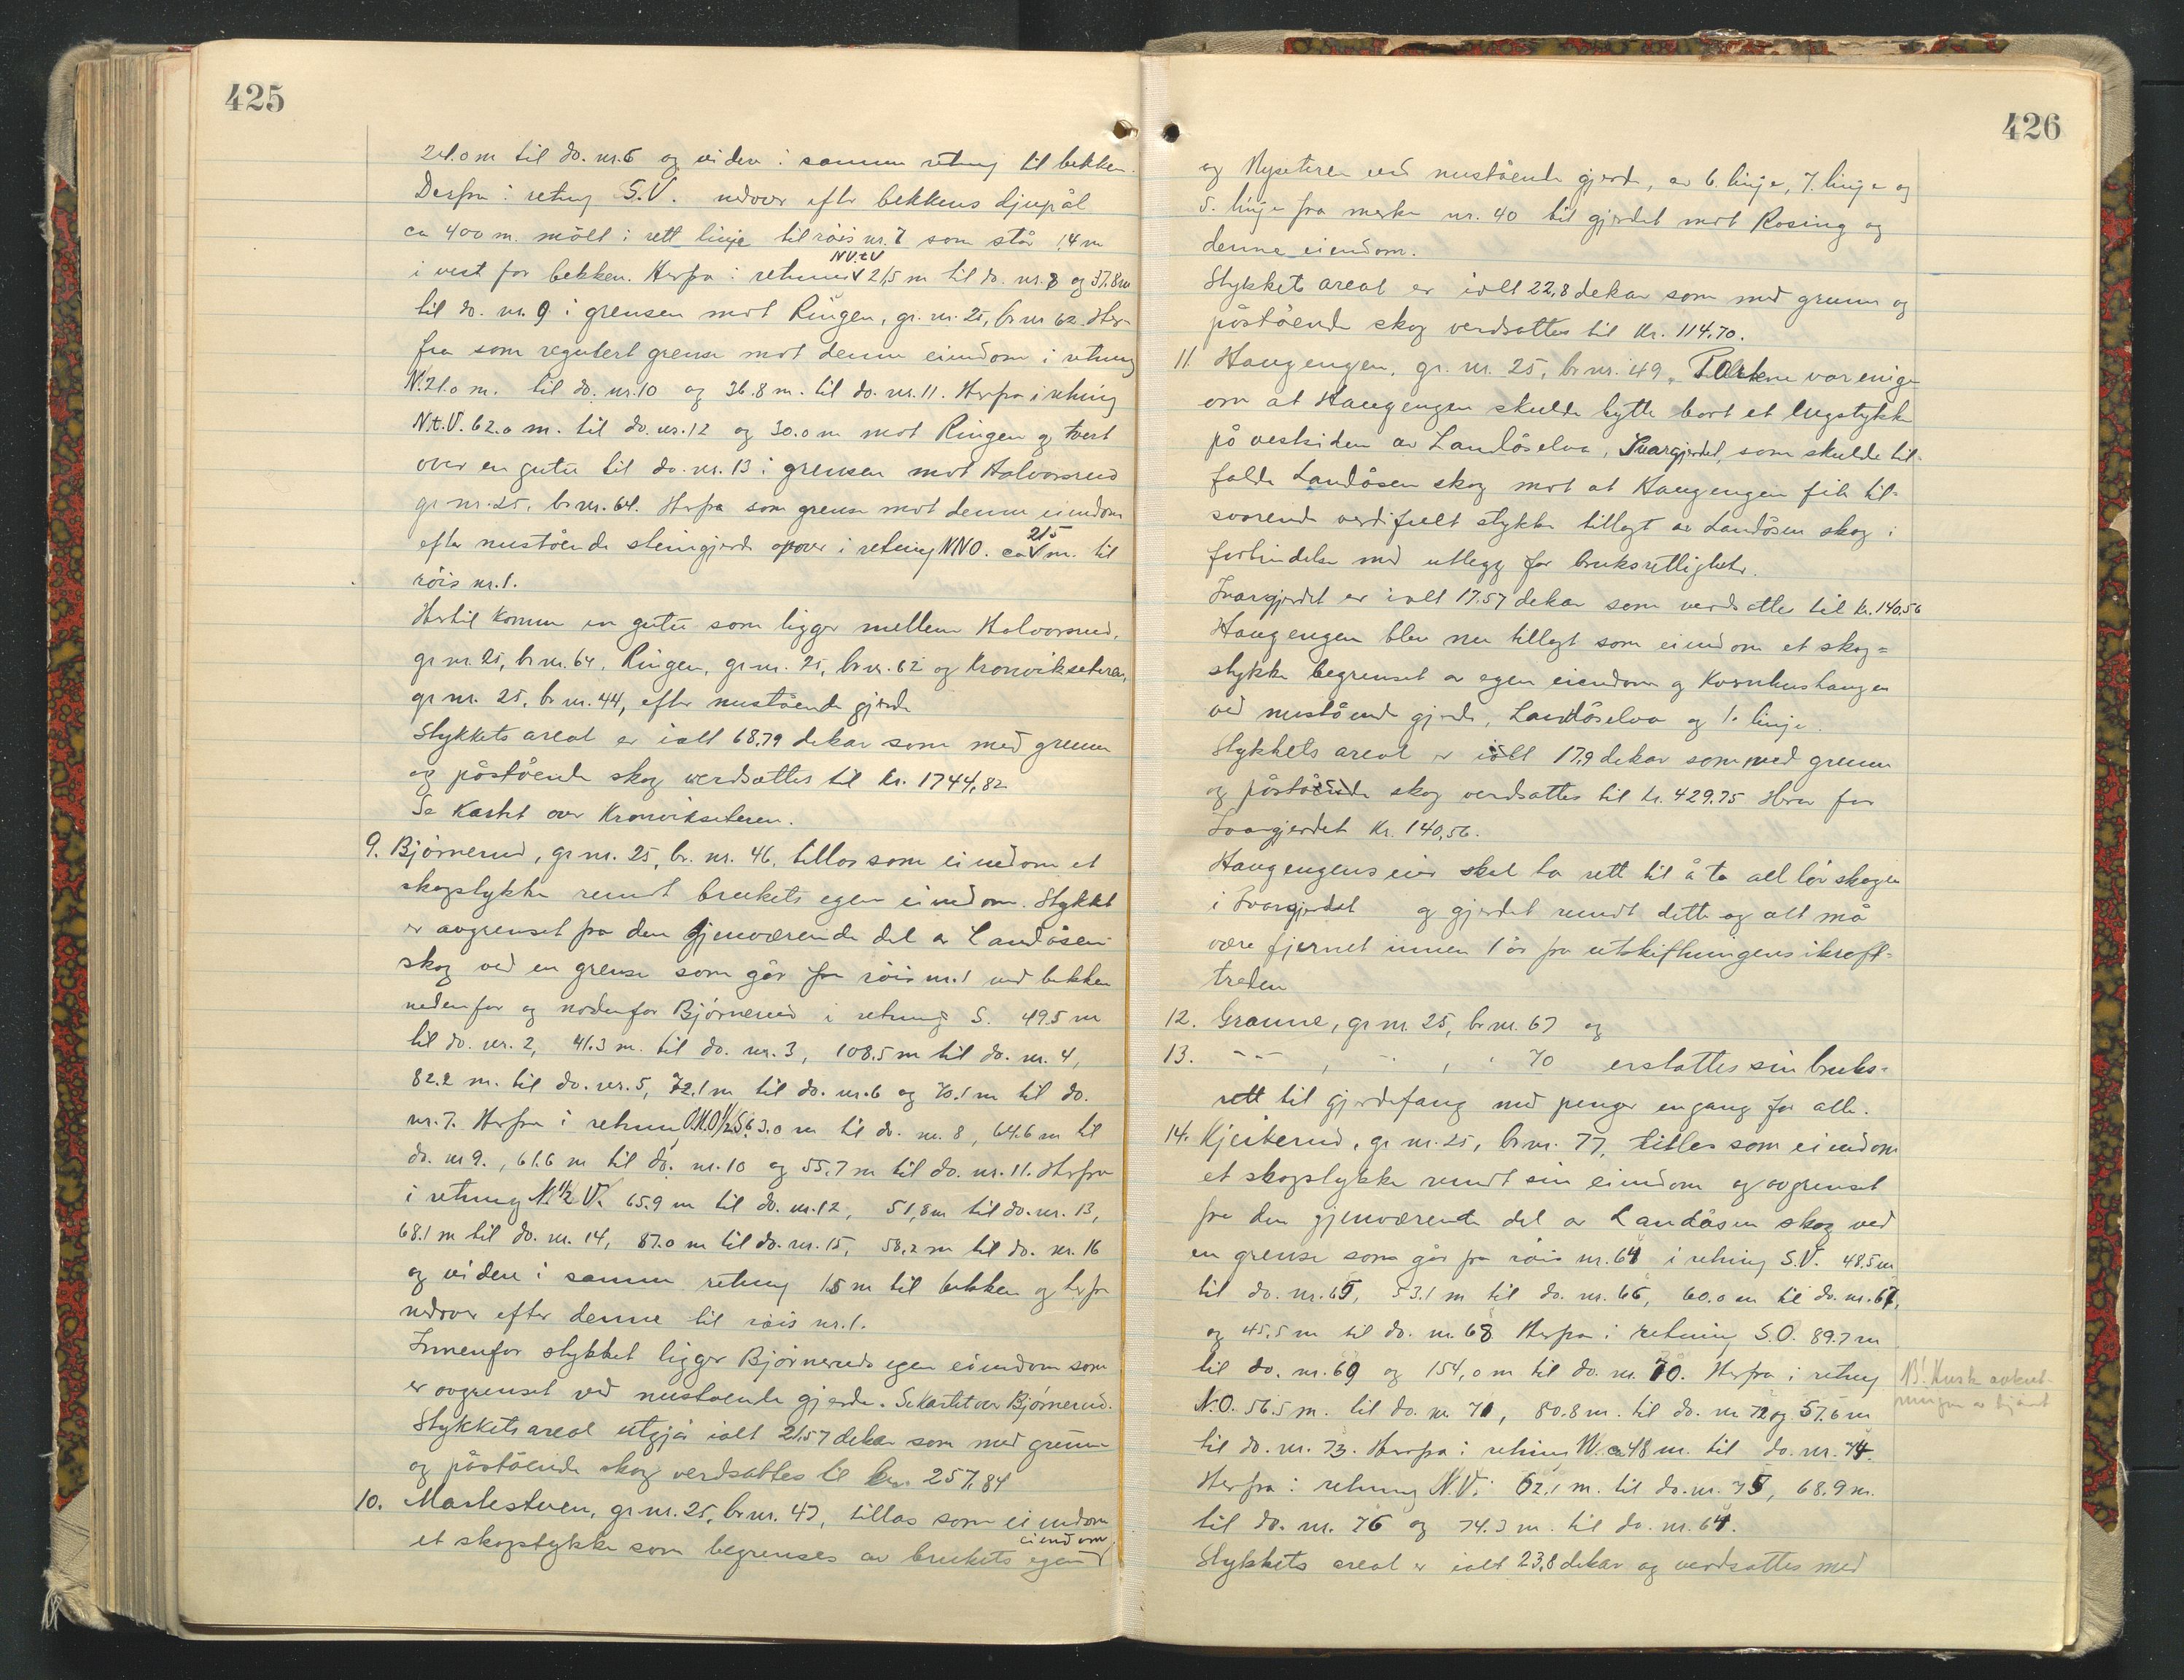 425
24.0 m til do. nr. 6 og videre i samme retning til bekken.
Derfra i retning S.V. nedover efter bekkens djupål
ca 400 m. målt i rett linje til röis nr. 7 som står 14 m
NV.t.V
i vest for bekken. Herfra i retning 21,5 m til do. nr. 8 og 37.8 m
til do. nr. 9 i grensen mot Ringen, gr. nr. 25, br nr 62. Her-
fra som regulert grense mot denne eiendom i retning
N. 21.0 m. til do. nr. 10 og 36.8 m. til do. nr. 11. Herfra i retning
N.t.V. 62.0 m. til do. nr. 12 og 30.0 m mot Ringen og tvert
over en gutu til do. nr. 13 i grensen mot Halvorsrud
gr nr. 25, br nr. 64. Herfra som grense mot denne eiendom
215
efter nustående steingjerde opover i retning NNO. ca m. til
röis nr. 1.
Hertil kommer en gutu som ligger mellem Halvorsrud,
gr nr. 25, br nr. 64, Ringen, gr nr. 25, br nr. 62 og Kronvikseteren,
gr nr. 25, br nr. 44, efter nustående gjerde
Stykkets areal er ialt 68,79 dekar som med grunn
og påstående skog verdsattes til kr. 1744,82
Se Kartet over Kronvikseteren.
9. Björnerud, gr nr. 25, br. nr. 46, tillas som eiendom et
skogstykke rundt brukets egen eiendom. Stykket
er avgrenset fra den gjenværende del av Landåsen
skog ved en grense som går fra röis nr. 1 ved bekken
nedenfor og nordenfor Björnerud i retning S. 49.5 m
til do. nr. 2, 41.3 m. til do. nr. 3, 108.5 m til do. nr. 4,
82.2 m. til do. nr. 5, 72.1 m til do. nr. 6 og 70.1 m til do.
nr. 7. Herfra i retning 63.0 m til do. nr. 8, 64.6 m til
do. nr 9., 61.6 m til do. nr. 10 og 55.7 m til do. nr. 11. Herfra
i retning N.½ V. 65.9 m til do. nr. 12, 51,8 m til do. nr. 13,
68.1 m til do. nr. 14, 87.0 m til do. nr. 15, 58,2 m til do. nr. 16
og videre i samme retning 15 m til bekken og herfra
nedover efter denne til röis nr. 1.
Innenfor stykket ligger Björneruds egen eiendom som
er avgrenset ved nustående gjerde. Se Kartet over Björnerud.
Stykkets areal utgjör ialt 21,57 dekar som med grunn
og påstående skog verdsattes til kr. 257,84
10. Marlesteven, gr nr. 25, br nr. 47, tillas som eiendom
eiendom
et skogstykke som begrenses av brukets egen
426
og Nyseteren ved nustående gjerde, av 6. linje, 7. linje og
5. linje fra merke nr. 40 til gjerdet mot Rosing og
denne eiendom.
Stykkets areal er ialt 22,8 dekar som med grunn og
påstående skog verdsattes til kr. 114,70.
11. Haugengen, gr. nr. 25, br nr. 49. Partene var enige
om at Haugengen skulde bytte bort et stykke
på vestsiden av Landåselva, Ivargjerdet, som skulde til-
falde Landåsen skog mot at Haugengen fik til-
svarende verdifuelt stykke tillagt av Landåsen skog i
forbindelse med utlegg for bruksrettigheter.
Ivargjerdet er ialt 17.57 dekar som verdsattes til kr. 140,56
Haugengen blev nu tillagt som eiendom et skog=
stykke begrenset av egen eiendom og Kvernhushaugen
ved nustående gjerde, Landåselva og 1. linje.
Stykkets areal er ialt 17,9 dekar som med grunn
og påstående skog verdsattes til kr. 429.75 Herav for
Ivargjerdet Kr. 140,56.
Haugengens eier skal ha rett til å ta all lövskogen
i Ivargjerdet og gjerdet rundt dette og alt må
være fjernet innen 1 år fra utskiftningens ikraft-
treden
12. Granne, gr nr. 25, br nr. 67 og
13. -"- , -"- , " 70 erstattes sin bruks-
rett til gjerdefang med penger engang for alle.
14. Kjeikerud, gr nr. 25, br nr. 77, tilles som eiendom
et skogstykke rundt sin eiendom og avgrenset
fra den gjenværende del av Landåsen skog ved
en grense som går fra röis nr. 64 i retning S.V. 48.5 m
til do. nr. 65, 53.1 m til do. nr. 66, 60.0 m til do. nr. 67,
og 45.5 m til do. nr. 68 Herfra i retning S.O. 89.7 m
til do. nr. 69 og 154,0 m til do. nr. 70. Herfra i retning
N.O. 56.5 m. til do. nr. 71, 80.8 m. til do. nr 72 og 57.6 m
til do. nr. 73. Herfra i retning N. ca 48 m. til do. nr. 74.
Herfra i retning N.V. 62.1 m. til do. nr. 75, 68.9 m.
til do. nr. 76 og 74.3 m. til do. nr. 64.
Stykkets areal er ialt 23,8 dekar og verdsattes med
NB! Husk